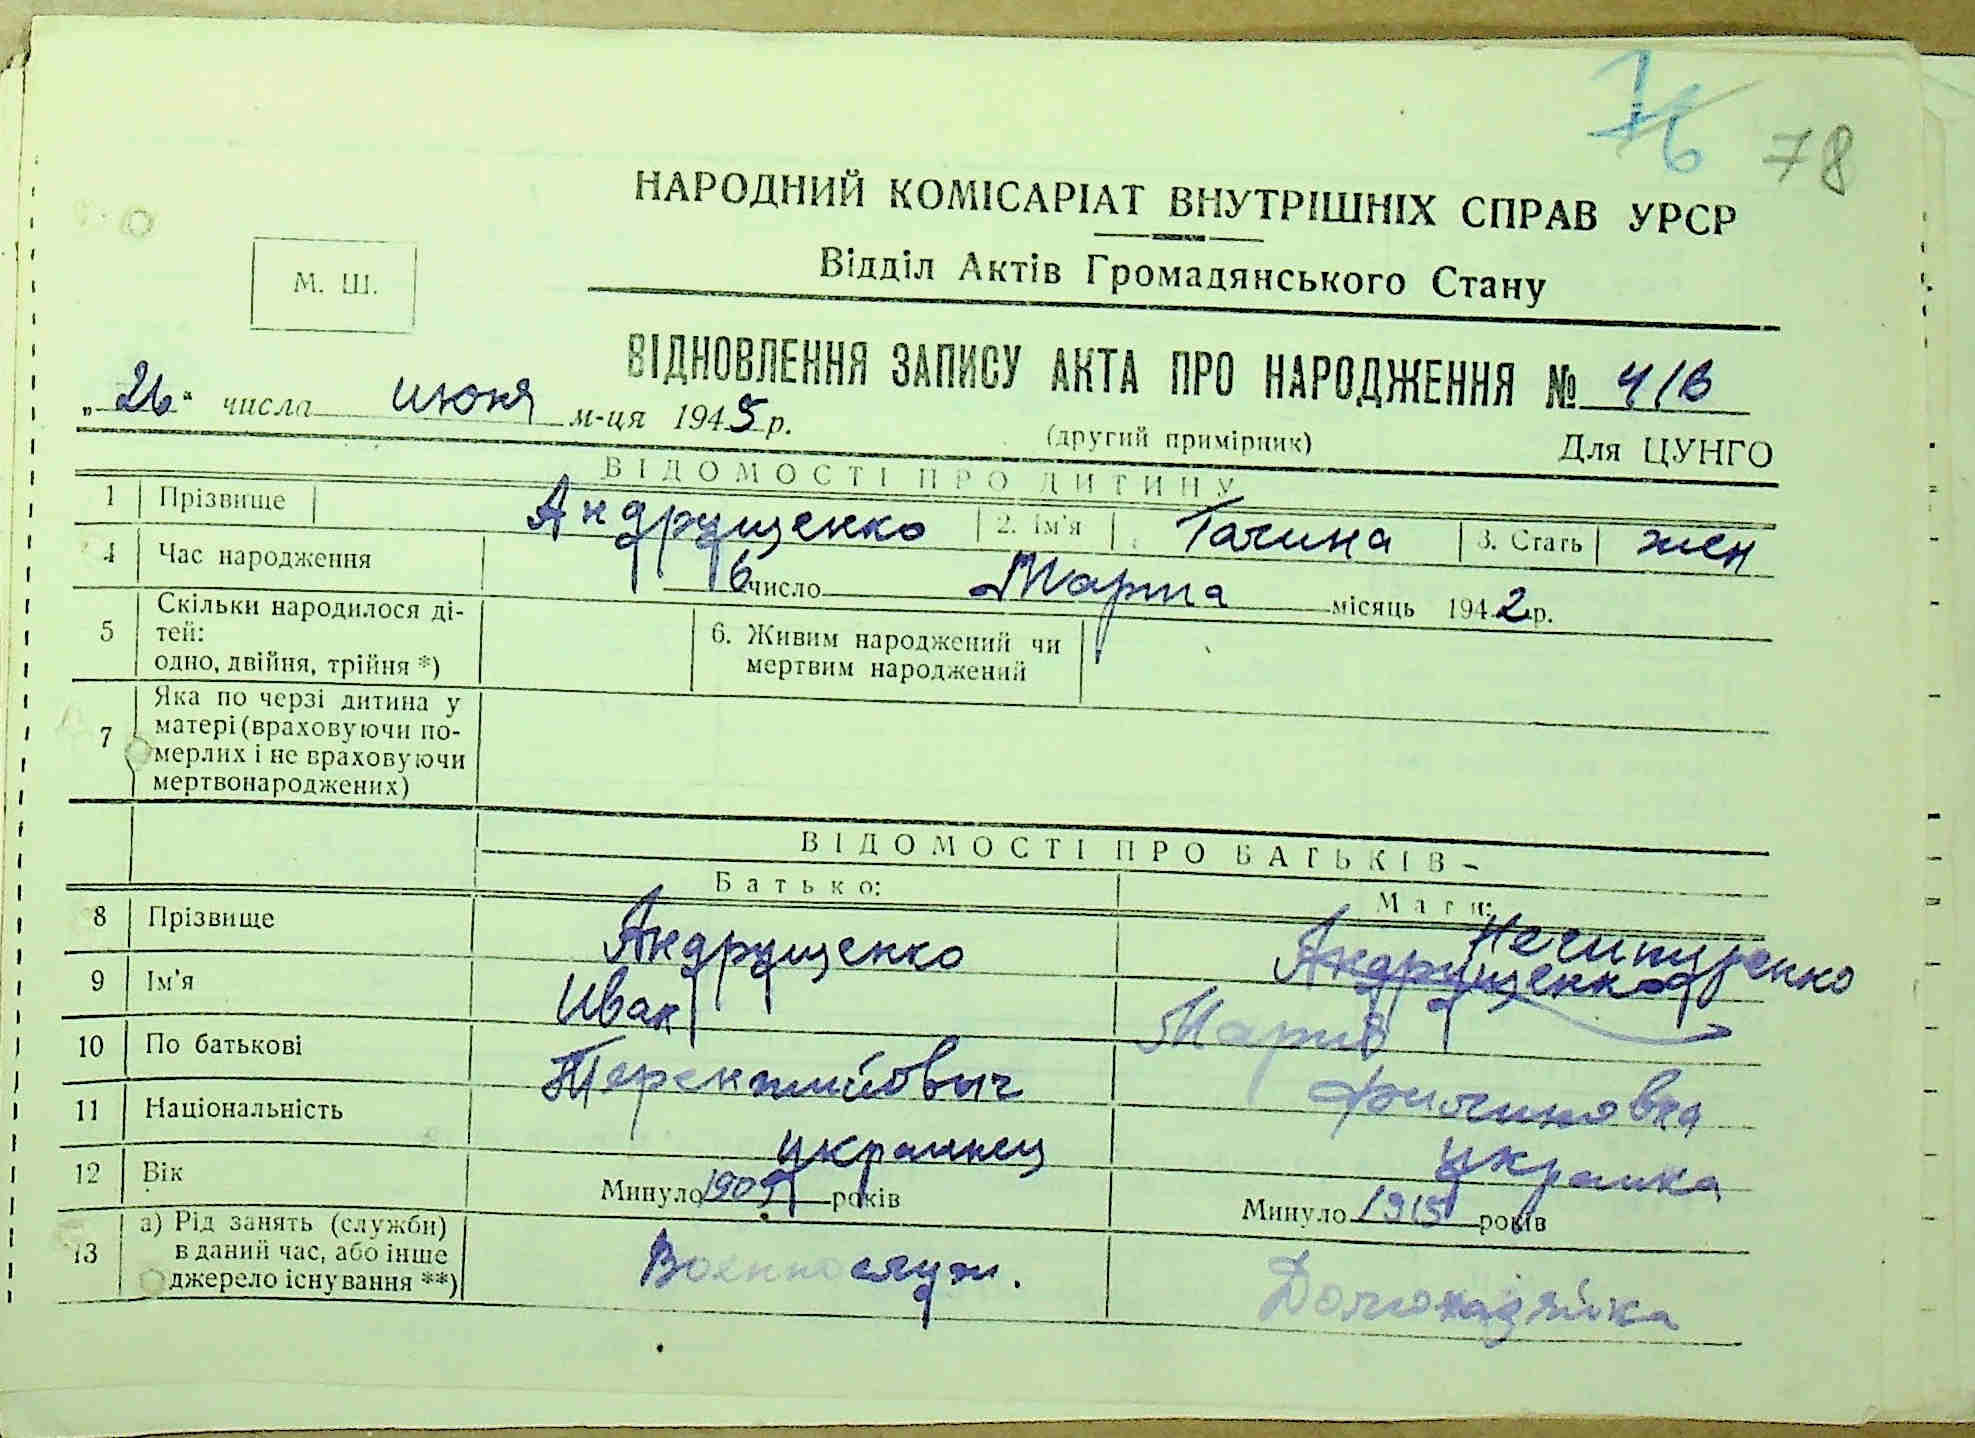 76 78
НАРОДНИЙ КОМІСАРІАТ ВНУТРІШНІХ СПРАВ УРСР
Відділ Актів Громадянського Стану
М. Ш.
ВІДНОВЛЕННЯ ЗАПИСУ АКТА ПРО НАРОДЖЕННЯ № 4/В
„26“ числа июня м-ця 1945 р.
(другий примірник) Для ЦУНГО
ВІДОМОСТІ ПРО ДИТИНУ
1 Прізвище Андрущенко 2. Ім'я Галина 3. Стать жен
4 Час народження 6 число Марта місяць 1942 р.
5 Скільки народилося ді-
тей:
одно, двійня, трійня *)
6. Живим народжений чи
мертвим народжений
7 Яка по черзі дитина у
матері (враховуючи по-
мерлих і не враховуючи
мертвонароджених)
ВІДОМОСТІ ПРО БАТЬКІВ
Батько: Мати:
8 Прізвище Андрущенко Андрущенко Нечипуренко
9 Ім'я Иван Мария
10 По батькові Терентийовыч Филиповна
11 Національність украинец украинка
12 Вік Минуло 1905 років Минуло 1915 років
13 а) Рід занять (служби)
в даний час, або інше
джерело існування **)
Военнослуж. Домохазяйка